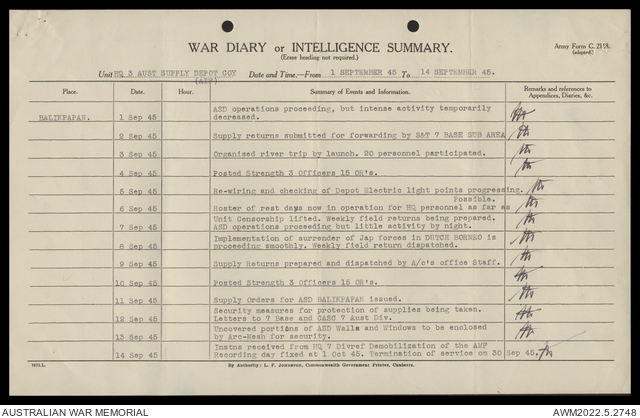 WAR DIARY or INTELLIGENCE SUMMARY.
(Erase heading not required.)
Army Form C. 2118.
(adapted)
Unit HQ 3 AUST SUPPLY DEPOT COY (AIF) Date and Time.—From 1 SEPTEMBER 45 To 14 SEPTEMBER 45.
Place. Date. Hour. Summary of Events and Information. Remarks and references to Appendices, Diaries, &c.
BALIKPAPAN. 1 Sep 45 ASD operations proceeding, but intense activity temporarily
decreased.
2 Sep 45 Supply returns submitted for forwarding by S&T 7 BASE SUB AREA
3 Sep 45 Organised river trip by launch. 20 personnel participated.
4 Sep 45 Posted Strength 3 Officers 15 OR's.
5 Sep 45 Re-wiring and checking of Depot Electric light points progressing.
Possible.
6 Sep 45 Roster of rest days now in operation for HQ personnel as far as
7 Sep 45 Unit Censorship lifted. Weekly field returns being prepared.
ASD operations proceeding but little activity by night.
8 Sep 45 Implementation of surrender of Jap forces in DUTCH BORNEO is
proceeding smoothly. Weekly field return dispatched.
9 Sep 45 Supply Returns prepared and dispatched by A/c's office Staff.
10 Sep 45 Posted Strength 3 Officers 15 OR's.
11 Sep 45 Supply Orders for ASD BALIKPAPAN issued.
12 Sep 45 Security measures for protection of supplies being taken.
Letters to 7 Base and CASC 7 Aust Div.
13 Sep 45 Uncovered portions of ASD Walls and Windows to be enclosed
by Arc-Mesh for security.
14 Sep 45 Instns received from HQ 7 Divref Demobilization of the AMF
Recording day fixed at 1 Oct 45. Termination of service on 30 Sep 45.
By Authority: L. F. Johnston, Commonwealth Government Printer, Canberra.
AUSTRALIAN WAR MEMORIAL
AWM2022.5.2748